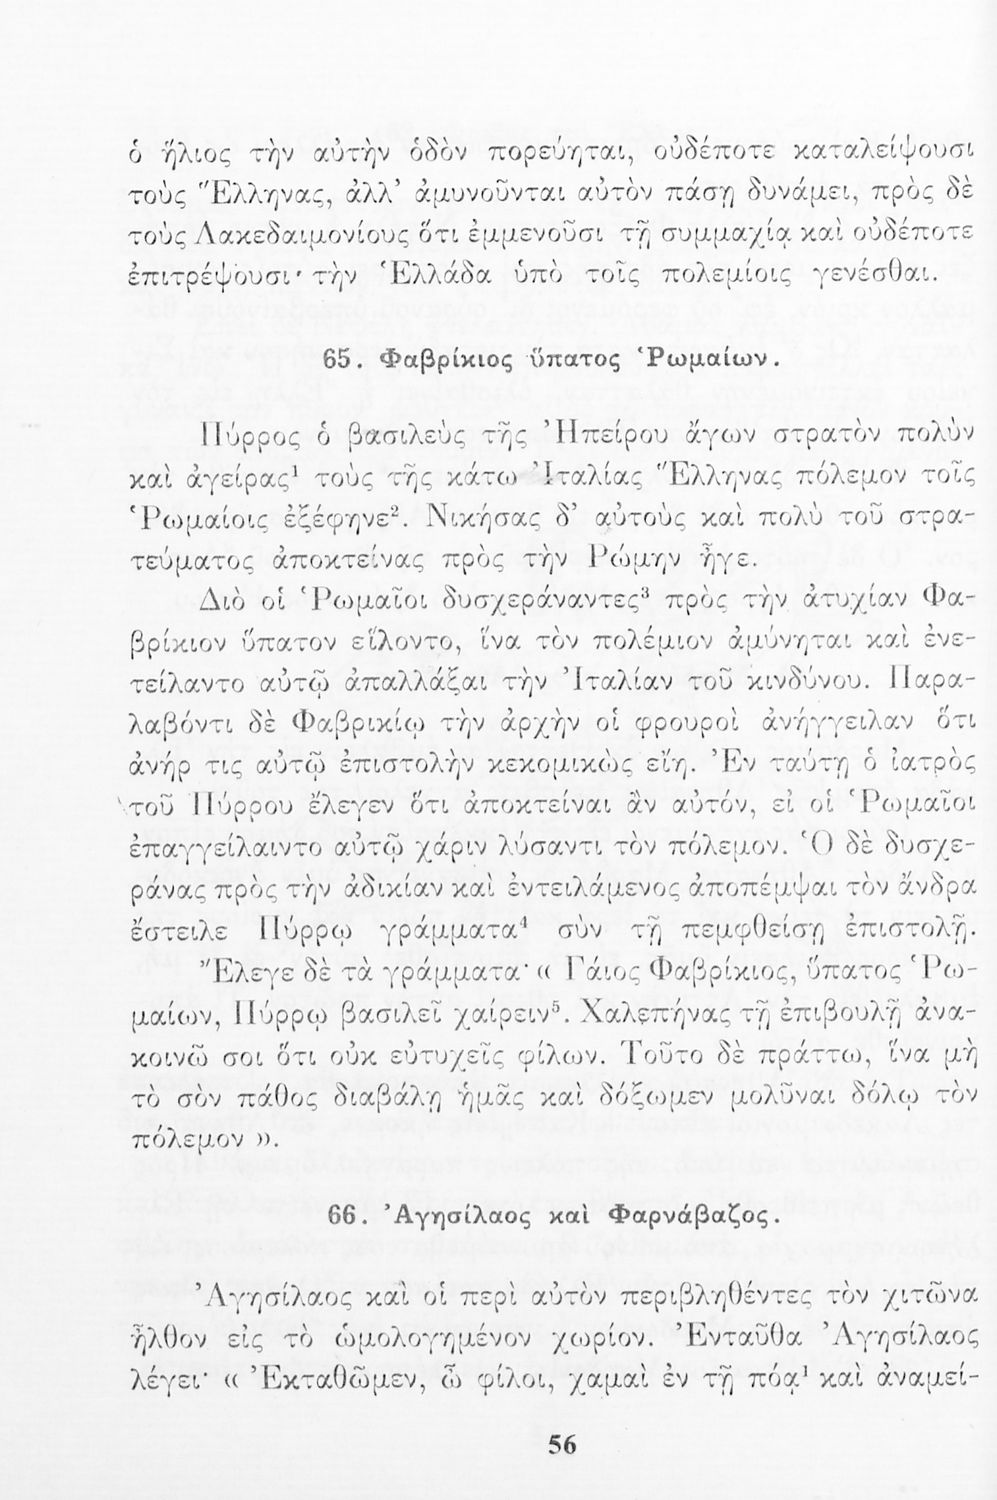 ὁ ἥλιος τὴν αὐτὴν ὁδὸν πορεύηται, οὐδέποτε καταλείψουσι
τοὺς Ἕλληνας, ἀλλ’ ἀμυνοῦνται αὐτὸν πάσῃ δυνάμει, πρὸς δὲ
τοὺς Λακεδαιμονίους ὅτι ἐμμενοῦσι τῇ συμμαχίᾳ καὶ οὐδέποτε
ἐπιτρέψουσι τὴν Ἑλλάδα ὑπὸ τοῖς πολεμίοις γενέσθαι.
65. Φαβρίκιος ὕπατος Ῥωμαίων.
Πύρρος ὁ βασιλεὺς τῆς Ἠπείρου ἄγων στρατὸν πολὺν
καὶ ἀγείρας¹ τοὺς τῆς κάτω Ἰταλίας Ἕλληνας πόλεμον τοῖς
Ῥωμαίοις ἐξέφηνε². Νικήσας δ’ αὐτοὺς καὶ πολὺ τοῦ στρα-
τεύματος ἀποκτείνας πρὸς τὴν Ῥώμην ἦγε.
Διὸ οἱ Ῥωμαῖοι δυσχεράναντες³ πρὸς τὴν ἀτυχίαν Φα-
βρίκιον ὕπατον εἵλοντο, ἵνα τὸν πολέμιον ἀμύνηται καὶ ἐνε-
τείλαντο αὐτῷ ἀπαλλάξαι τὴν Ἰταλίαν τοῦ κινδύνου. Παρα-
λαβόντι δὲ Φαβρικίῳ τὴν ἀρχὴν οἱ φρουροὶ ἀνήγγειλαν ὅτι
ἀνήρ τις αὐτῷ ἐπιστολὴν κεκομικὼς εἴη. Ἐν ταύτῃ ὁ ἰατρὸς
τοῦ Πύρρου ἔλεγεν ὅτι ἀποκτείναι ἂν αὐτόν, εἰ οἱ Ῥωμαῖοι
ἐπαγγείλαιντο αὐτῷ χάριν λύσαντι τὸν πόλεμον. Ὁ δὲ δυσχε-
ράνας πρὸς τὴν ἀδικίαν καὶ ἐντειλάμενος ἀποπέμψαι τὸν ἄνδρα
ἔστειλε Πύρρῳ γράμματα⁴ σὺν τῇ πεμφθείσῃ ἐπιστολῇ.
Ἔλεγε δὲ τὰ γράμματα· « Γάιος Φαβρίκιος, ὕπατος Ῥω-
μαίων, Πύρρῳ βασιλεῖ χαίρειν⁵. Χαλεπήνας τῇ ἐπιβουλῇ ἀνα-
κοινῶ σοι ὅτι οὐκ εὐτυχεῖς φίλων. Τοῦτο δὲ πράττω, ἵνα μὴ
τὸ σὸν πάθος διαβάλῃ ἡμᾶς καὶ δόξωμεν μολῦναι δόλῳ τὸν
πόλεμον ».
66. Ἀγησίλαος καὶ Φαρνάβαζος.
Ἀγησίλαος καὶ οἱ περὶ αὐτὸν περιβληθέντες τὸν χιτῶνα
ἦλθον εἰς τὸ ὡμολογημένον χωρίον. Ἐνταῦθα Ἀγησίλαος
λέγει· « Ἐκταθῶμεν, ὦ φίλοι, χαμαὶ ἐν τῇ πόᾳ¹ καὶ ἀναμεί-
56